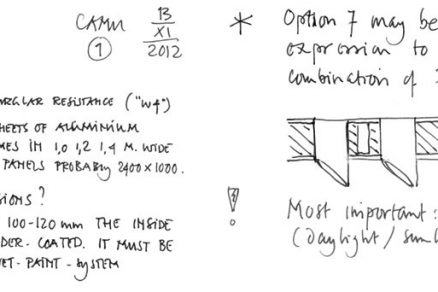 CAMU 13
XI
2012
1
RESISTANCE ("W4")
SHEETS OF ALUMINIUM
IN 1,0 1,2 1,4 M. WIDE
PANELS PROBABLY 2400 x 1000.
?
100-120 mm THE INSIDE
COATED. IT MUST BE
WET-PAINT-SYSTEM
* Option 7 may be
expression to
combination of
Most important:
(daylight /